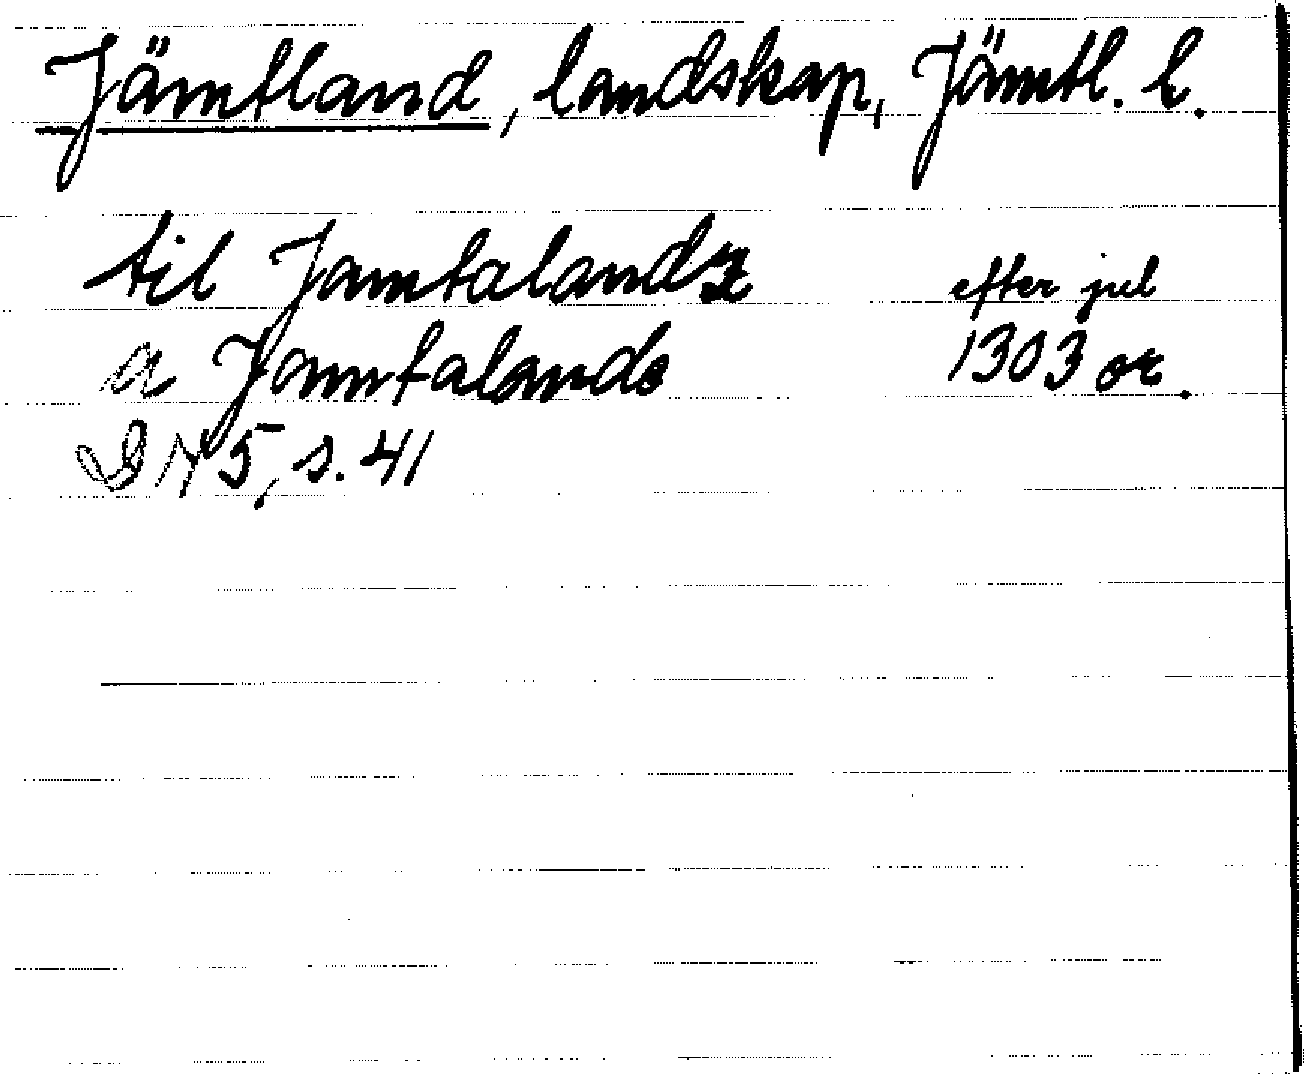 Jämtland, landskap, Jämtl. l.
til Jamtalandz efter jul
a Jamtalande 1303 or.
DN 5, s. 41